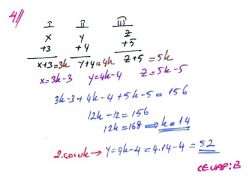 4//
I II III
x y z
+3 +4 +5
x+3=3k y+4=4k z+5=5k
x=3k-3 y=4k-4 z=5k-5
3k-3+4k-4+5k-5=156
12k-12=156
12k=168 ⇒ k=14
2.çocuk → y=4k-4=4.14-4=52
CEVAP:B